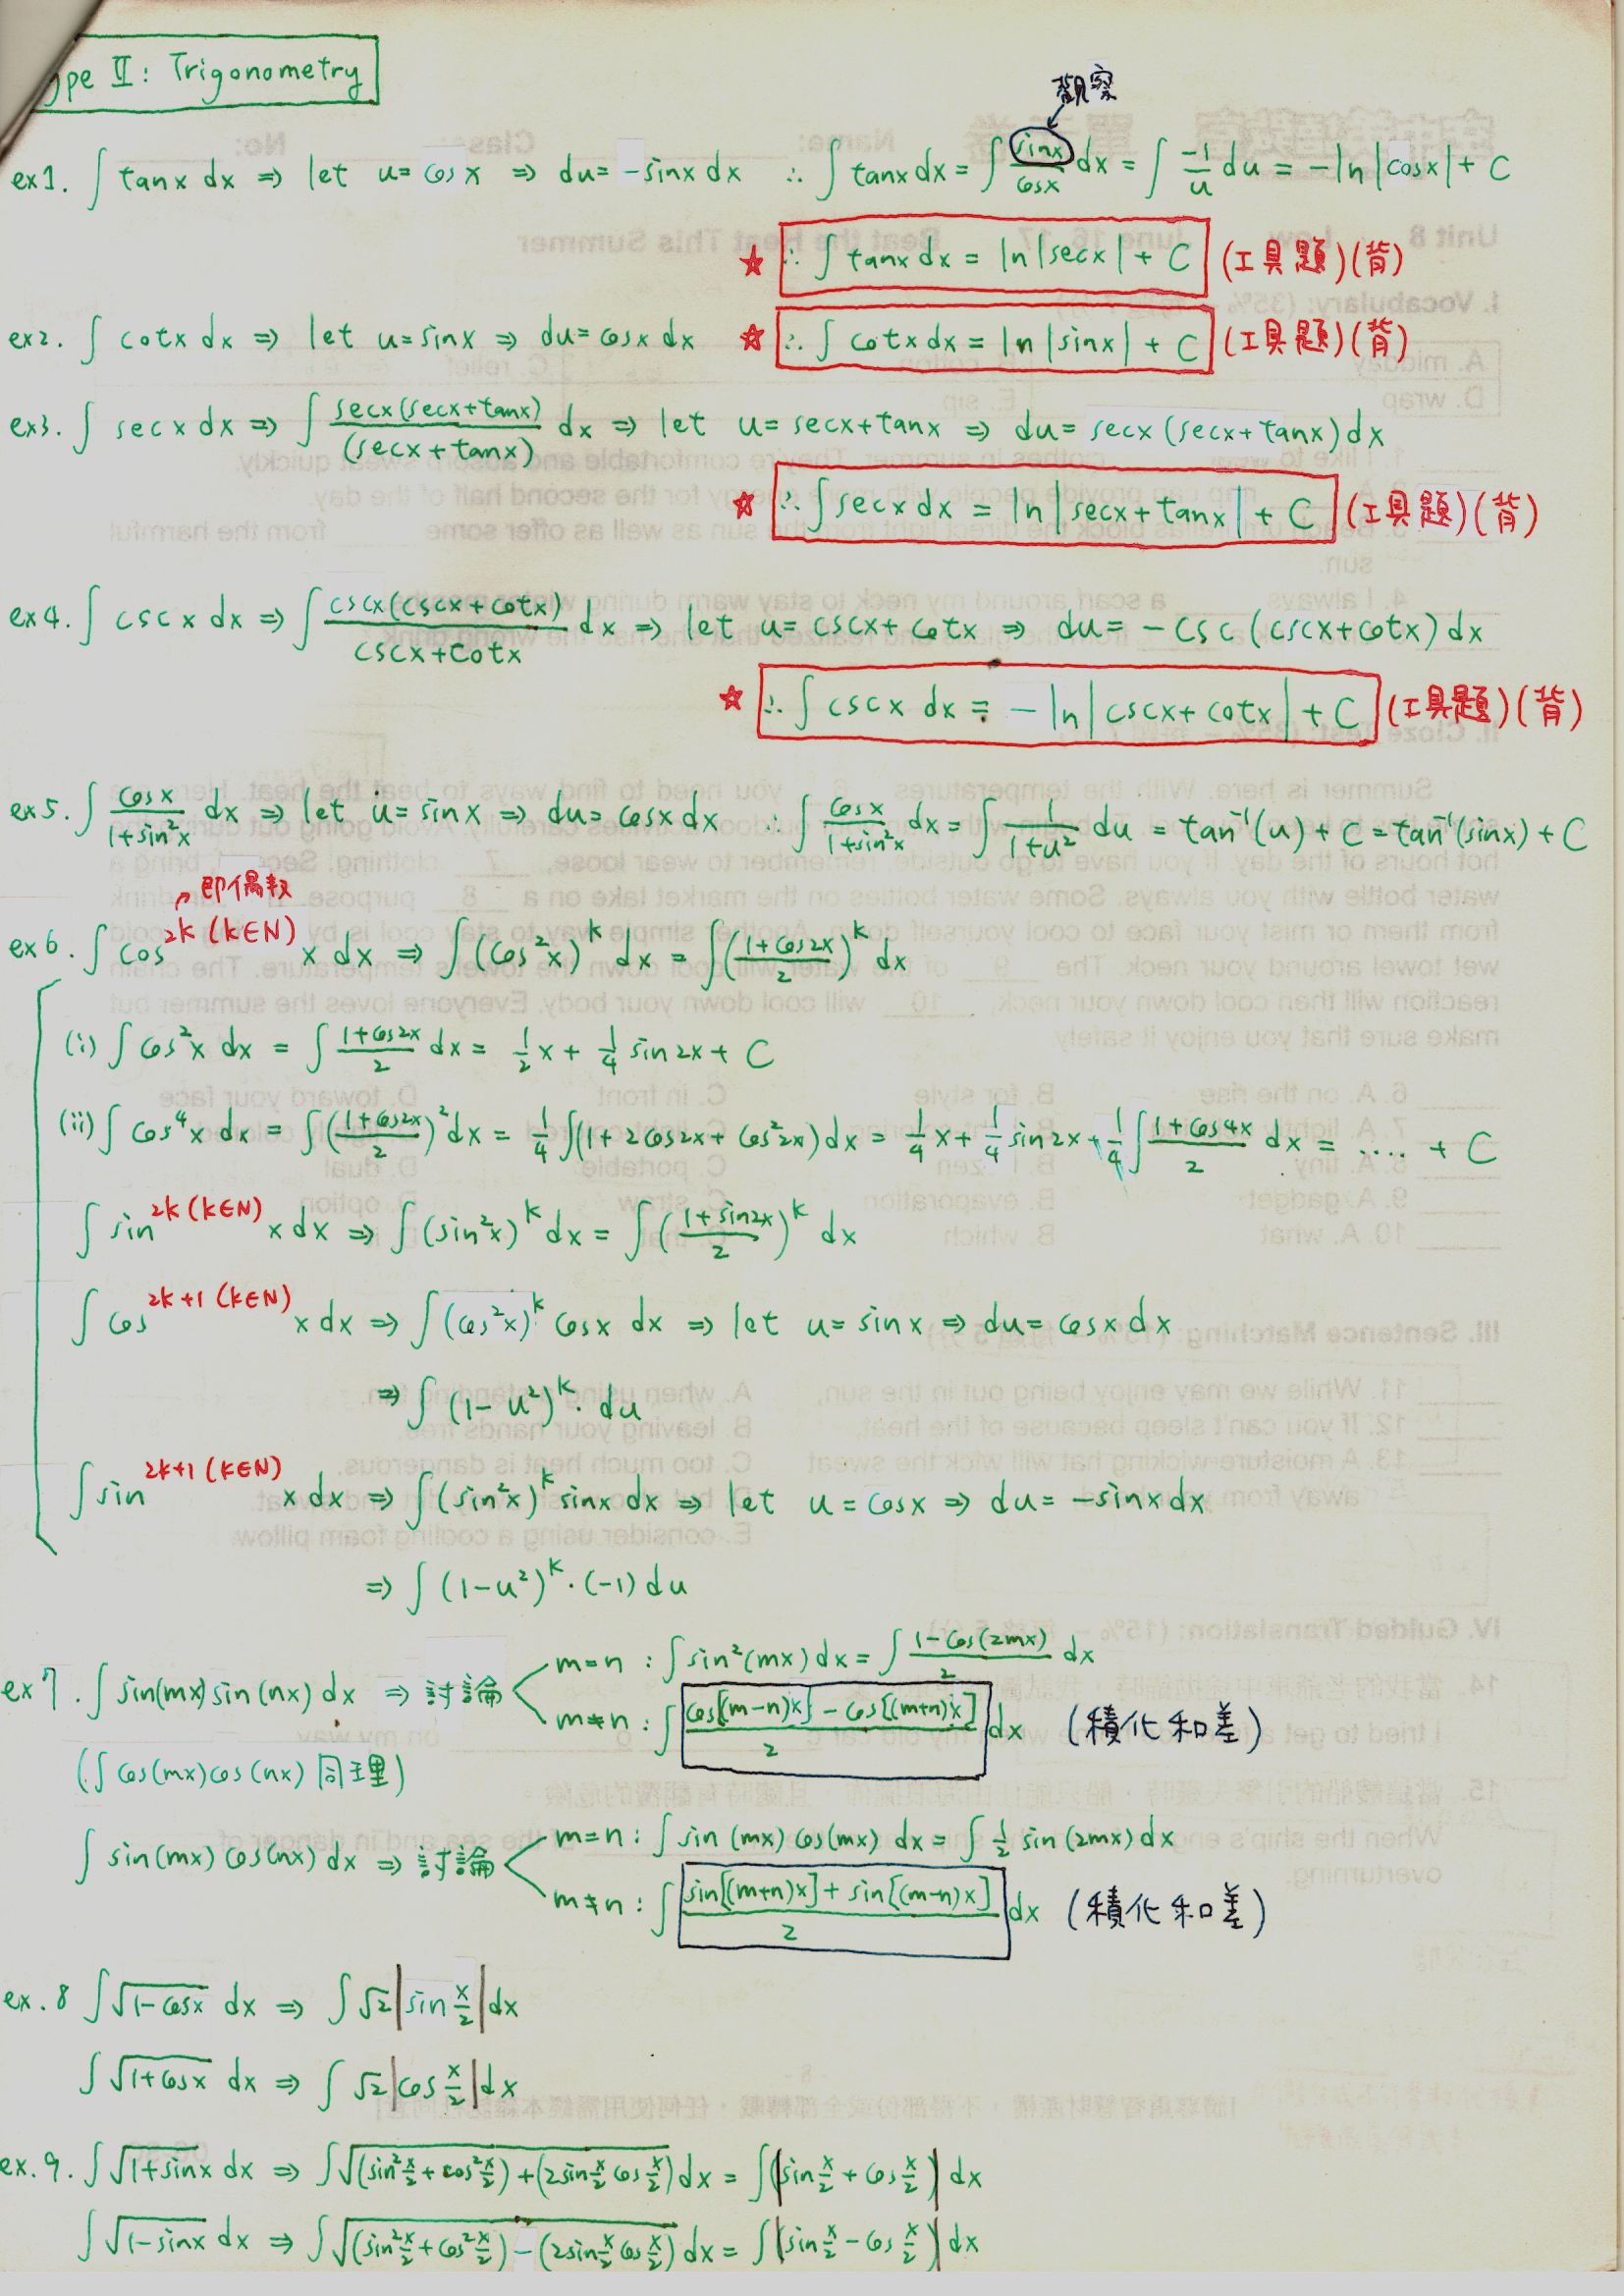 ype II: Trigonometry
觀察
ex1. ∫ tanx dx ⇒ let u=cosx ⇒ du=-sinx dx ∴ ∫ tanx dx = ∫ sinx/cosx dx = ∫ -1/u du = -ln|cosx| + C
☆ ∴ ∫ tanx dx = ln|secx| + C (工具題)(背)
ex2. ∫ cotx dx ⇒ let u=sinx ⇒ du=cosx dx ☆ ∴ ∫ cotx dx = ln|sinx| + C (工具題)(背)
ex3. ∫ secx dx ⇒ ∫ secx(secx+tanx)/(secx+tanx) dx ⇒ let u=secx+tanx ⇒ du=secx(secx+tanx)dx
☆ ∴ ∫ secx dx = ln|secx+tanx| + C (工具題)(背)
ex4. ∫ cscx dx ⇒ ∫ cscx(cscx+cotx)/cscx+cotx dx ⇒ let u=cscx+cotx ⇒ du=-csc(cscx+cotx)dx
☆ ∴ ∫ cscx dx = -ln|cscx+cotx| + C (工具題)(背)
ex5. ∫ cosx/1+sin²x dx ⇒ let u=sinx ⇒ du=cosx dx ∴ ∫ cosx/1+sin²x dx = ∫ 1/1+u² du = tan⁻¹(u) + C = tan⁻¹(sinx) + C
即偶数
ex6. ∫ cos^2k (k∈N) x dx ⇒ ∫ (cos²x)^k dx = ∫ (1+cos2x/2)^k dx
(i) ∫ cos²x dx = ∫ 1+cos2x/2 dx = 1/2 x + 1/4 sin2x + C
(ii) ∫ cos⁴x dx = ∫ (1+cos2x/2)² dx = 1/4 ∫(1+2cos2x+cos²2x)dx = 1/4 x + 1/4 sin2x + 1/4 ∫ 1+cos4x/2 dx = .... + C
∫ sin^2k (k∈N) x dx ⇒ ∫ (sin²x)^k dx = ∫ (1+sin2x/2)^k dx
∫ cos^2k+1 (k∈N) x dx ⇒ ∫ (cos²x)^k cosx dx ⇒ let u=sinx ⇒ du=cosx dx
⇒ ∫ (1-u²)^k · du
∫ sin^2k+1 (k∈N) x dx ⇒ ∫ (sin²x)^k sinx dx ⇒ let u=cosx ⇒ du=-sinx dx
⇒ ∫ (1-u²)^k · (-1) du
ex7. ∫ sin(mx) sin(nx) dx ⇒ 討論
m=n : ∫ sin²(mx) dx = ∫ 1-cos(2mx)/2 dx
m≠n : ∫ cos[(m-n)x] - cos[(m+n)x]/2 dx (積化和差)
(∫ cos(mx)cos(nx) 同理)
∫ sin(mx) cos(nx) dx ⇒ 討論
m=n : ∫ sin(mx) cos(mx) dx = ∫ 1/2 sin(2mx) dx
m≠n : ∫ sin[(m+n)x] + sin[(m-n)x]/2 dx (積化和差)
ex.8 ∫ √(1-cosx) dx ⇒ ∫ √2|sin x/2|dx
∫ √(1+cosx) dx ⇒ ∫ √2|cos x/2|dx
ex.9. ∫ √(1+sinx) dx ⇒ ∫ √((sin² x/2 + cos² x/2) + (2sin x/2 cos x/2)) dx = ∫ |sin x/2 + cos x/2| dx
∫ √(1-sinx) dx ⇒ ∫ √((sin² x/2 + cos² x/2) - (2sin x/2 cos x/2)) dx = ∫ |sin x/2 - cos x/2| dx